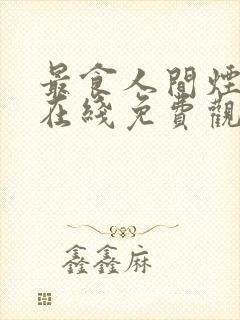 最食人間煙
在綫免費觀
鑫鑫麻